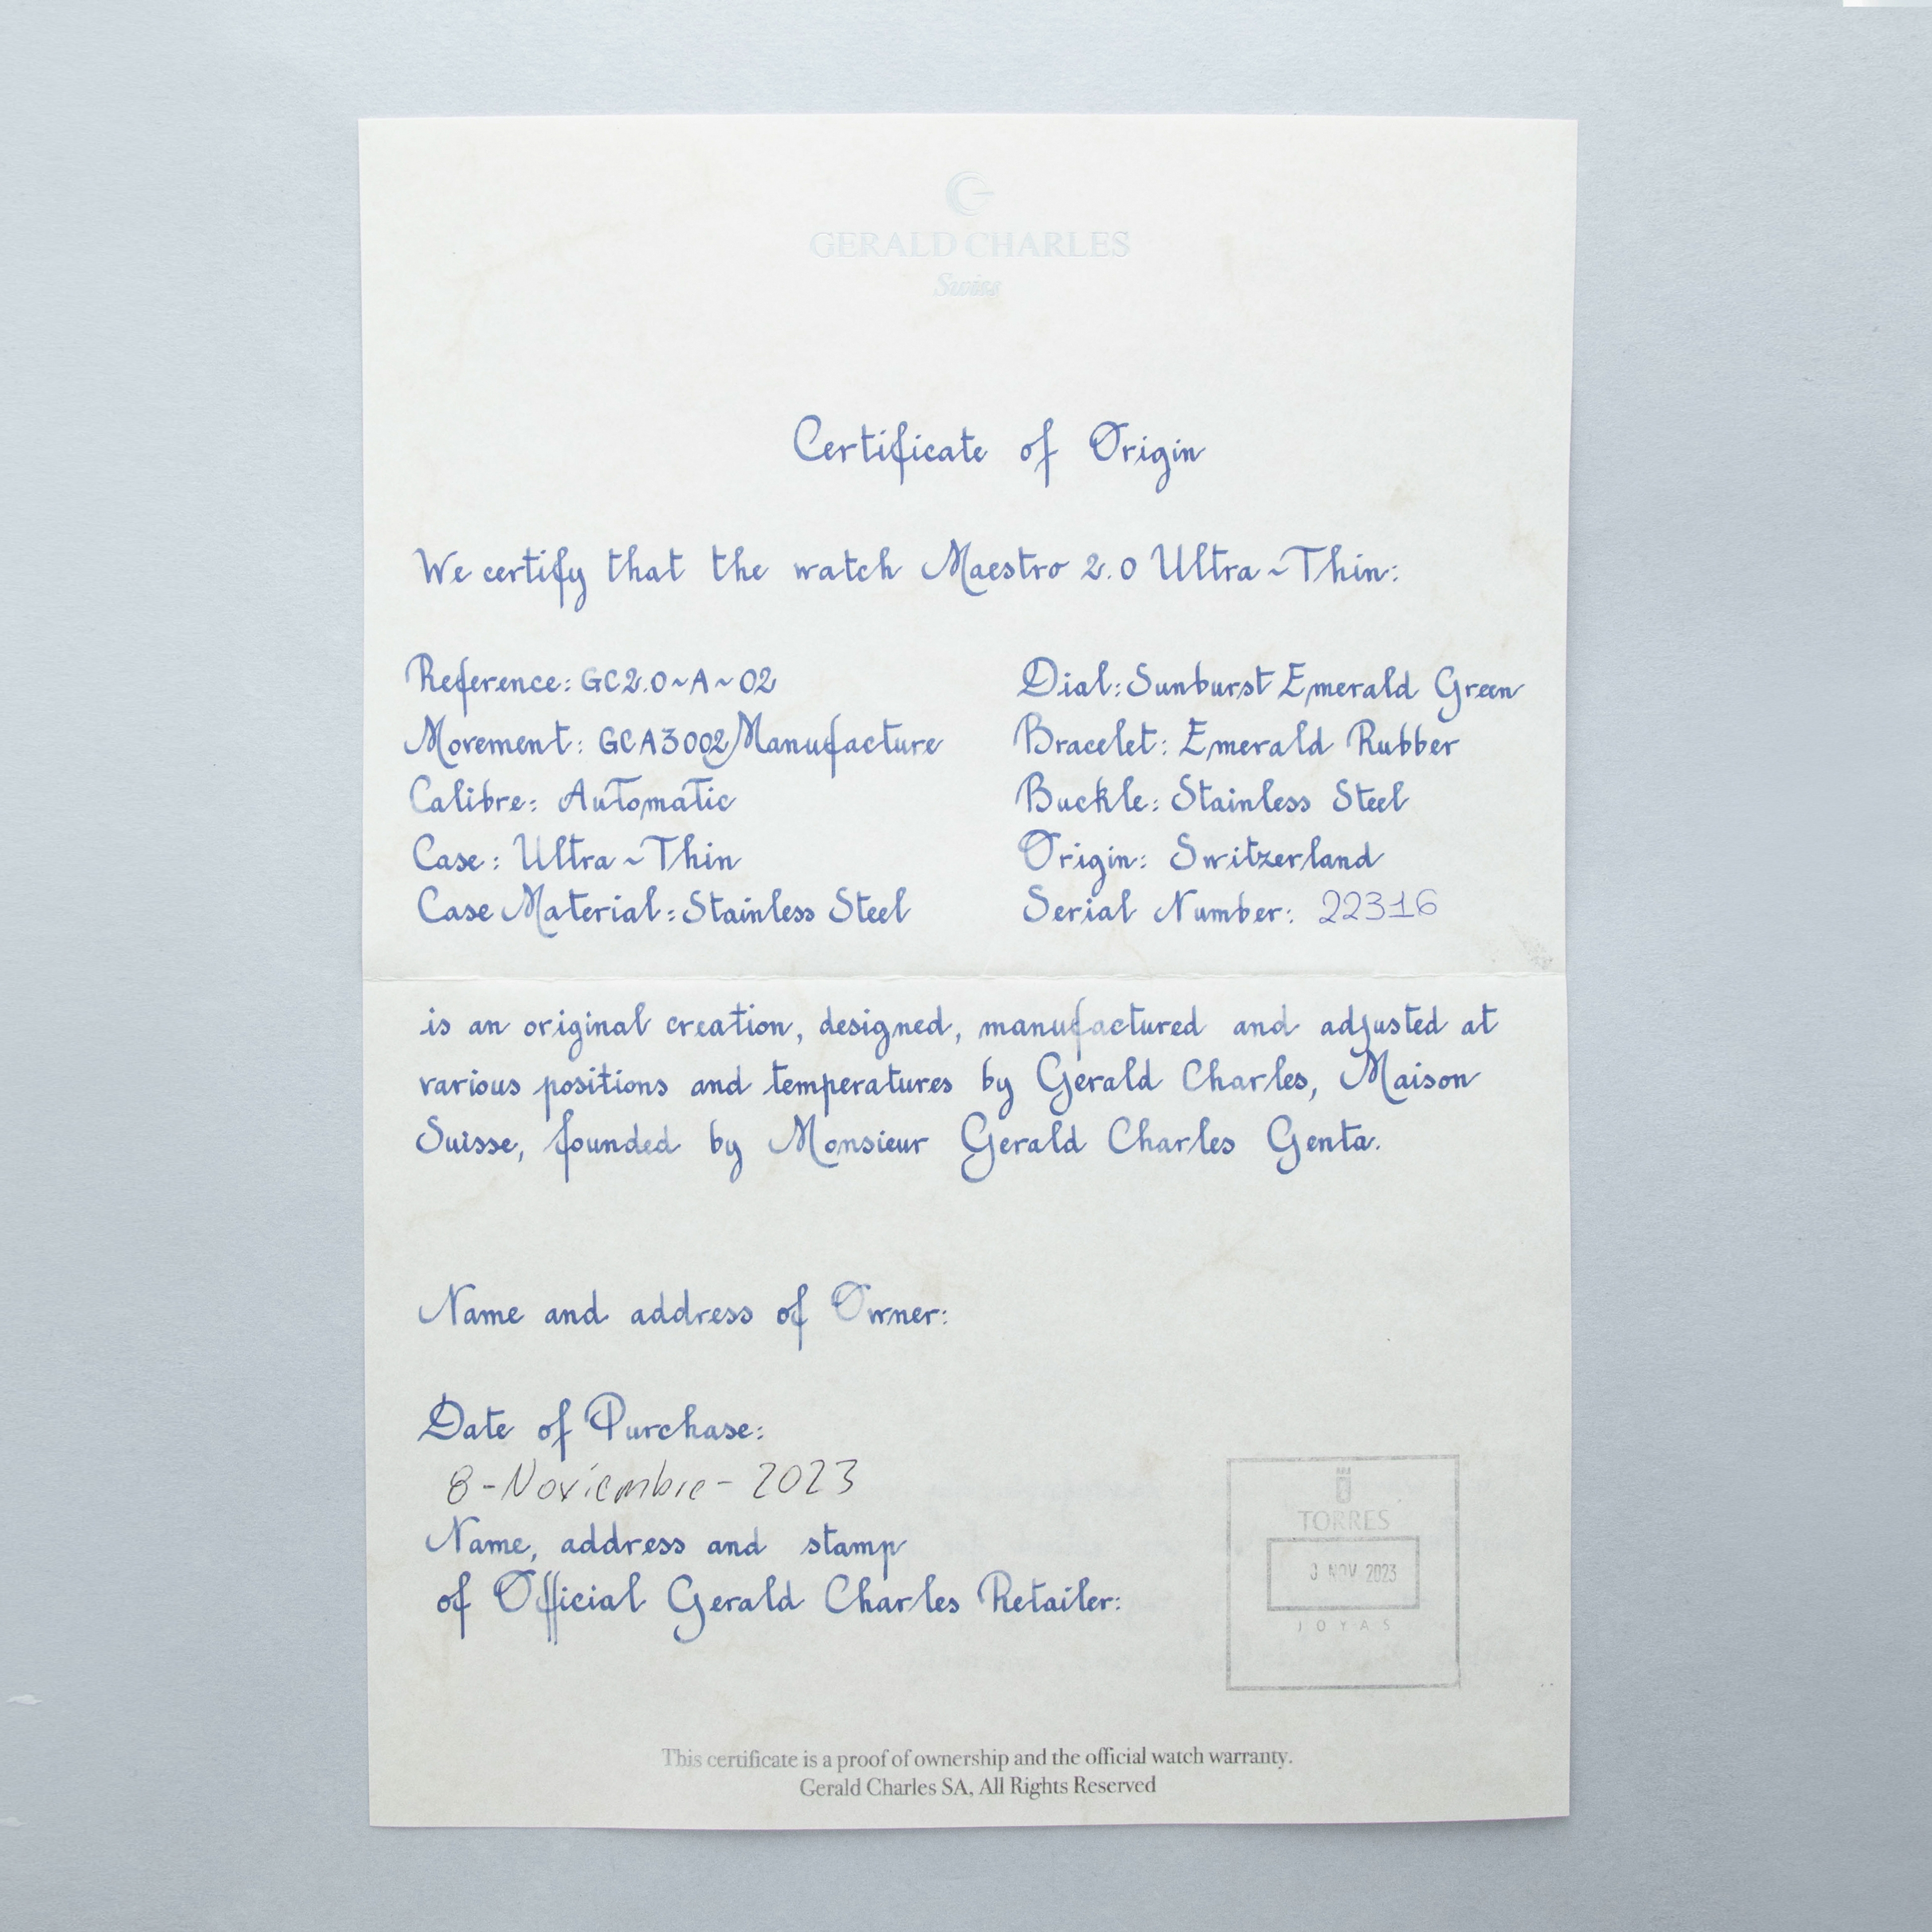 GERALD CHARLES
Swiss
Certificate of Origin
We certify that the watch Maestro 2.0 Ultra~Thin:
Reference: GC2.0~A~02
Movement: GCA3002 Manufacture
Calibre: Automatic
Case: Ultra~Thin
Case Material: Stainless Steel
Dial: Sunburst Emerald Green
Bracelet: Emerald Rubber
Buckle: Stainless Steel
Origin: Switzerland
Serial Number: 22316
is an original creation, designed, manufactured and adjusted at
various positions and temperatures by Gerald Charles, Maison
Suisse, founded by Monsieur Gerald Charles Genta.
Name and address of Owner:
Date of Purchase:
8-Noviembre-2023
Name, address and stamp
of Official Gerald Charles Retailer:
TORRES
NOV 2023
JOYAS
This certificate is a proof of ownership and the official watch warranty.
Gerald Charles SA, All Rights Reserved